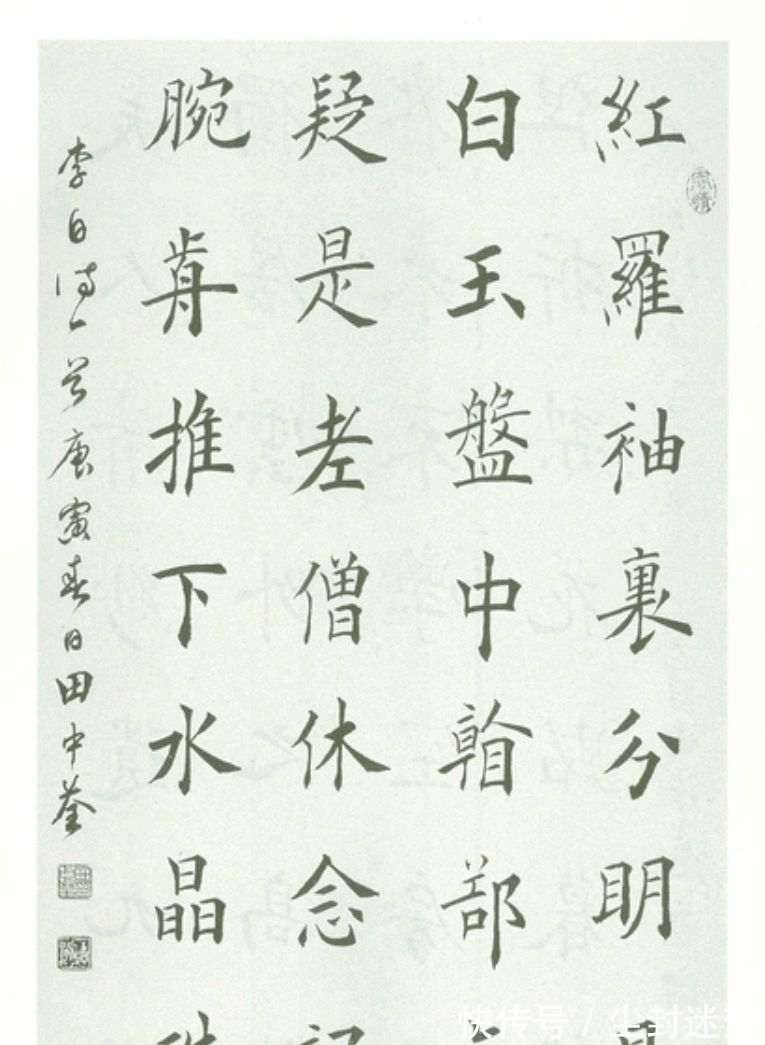 紅羅袖裏分明
白玉盤中看卻
疑是老僧休念
腕前推下水晶
李白詩一首庚寅春日田中荃
快传号 / 尘封迷